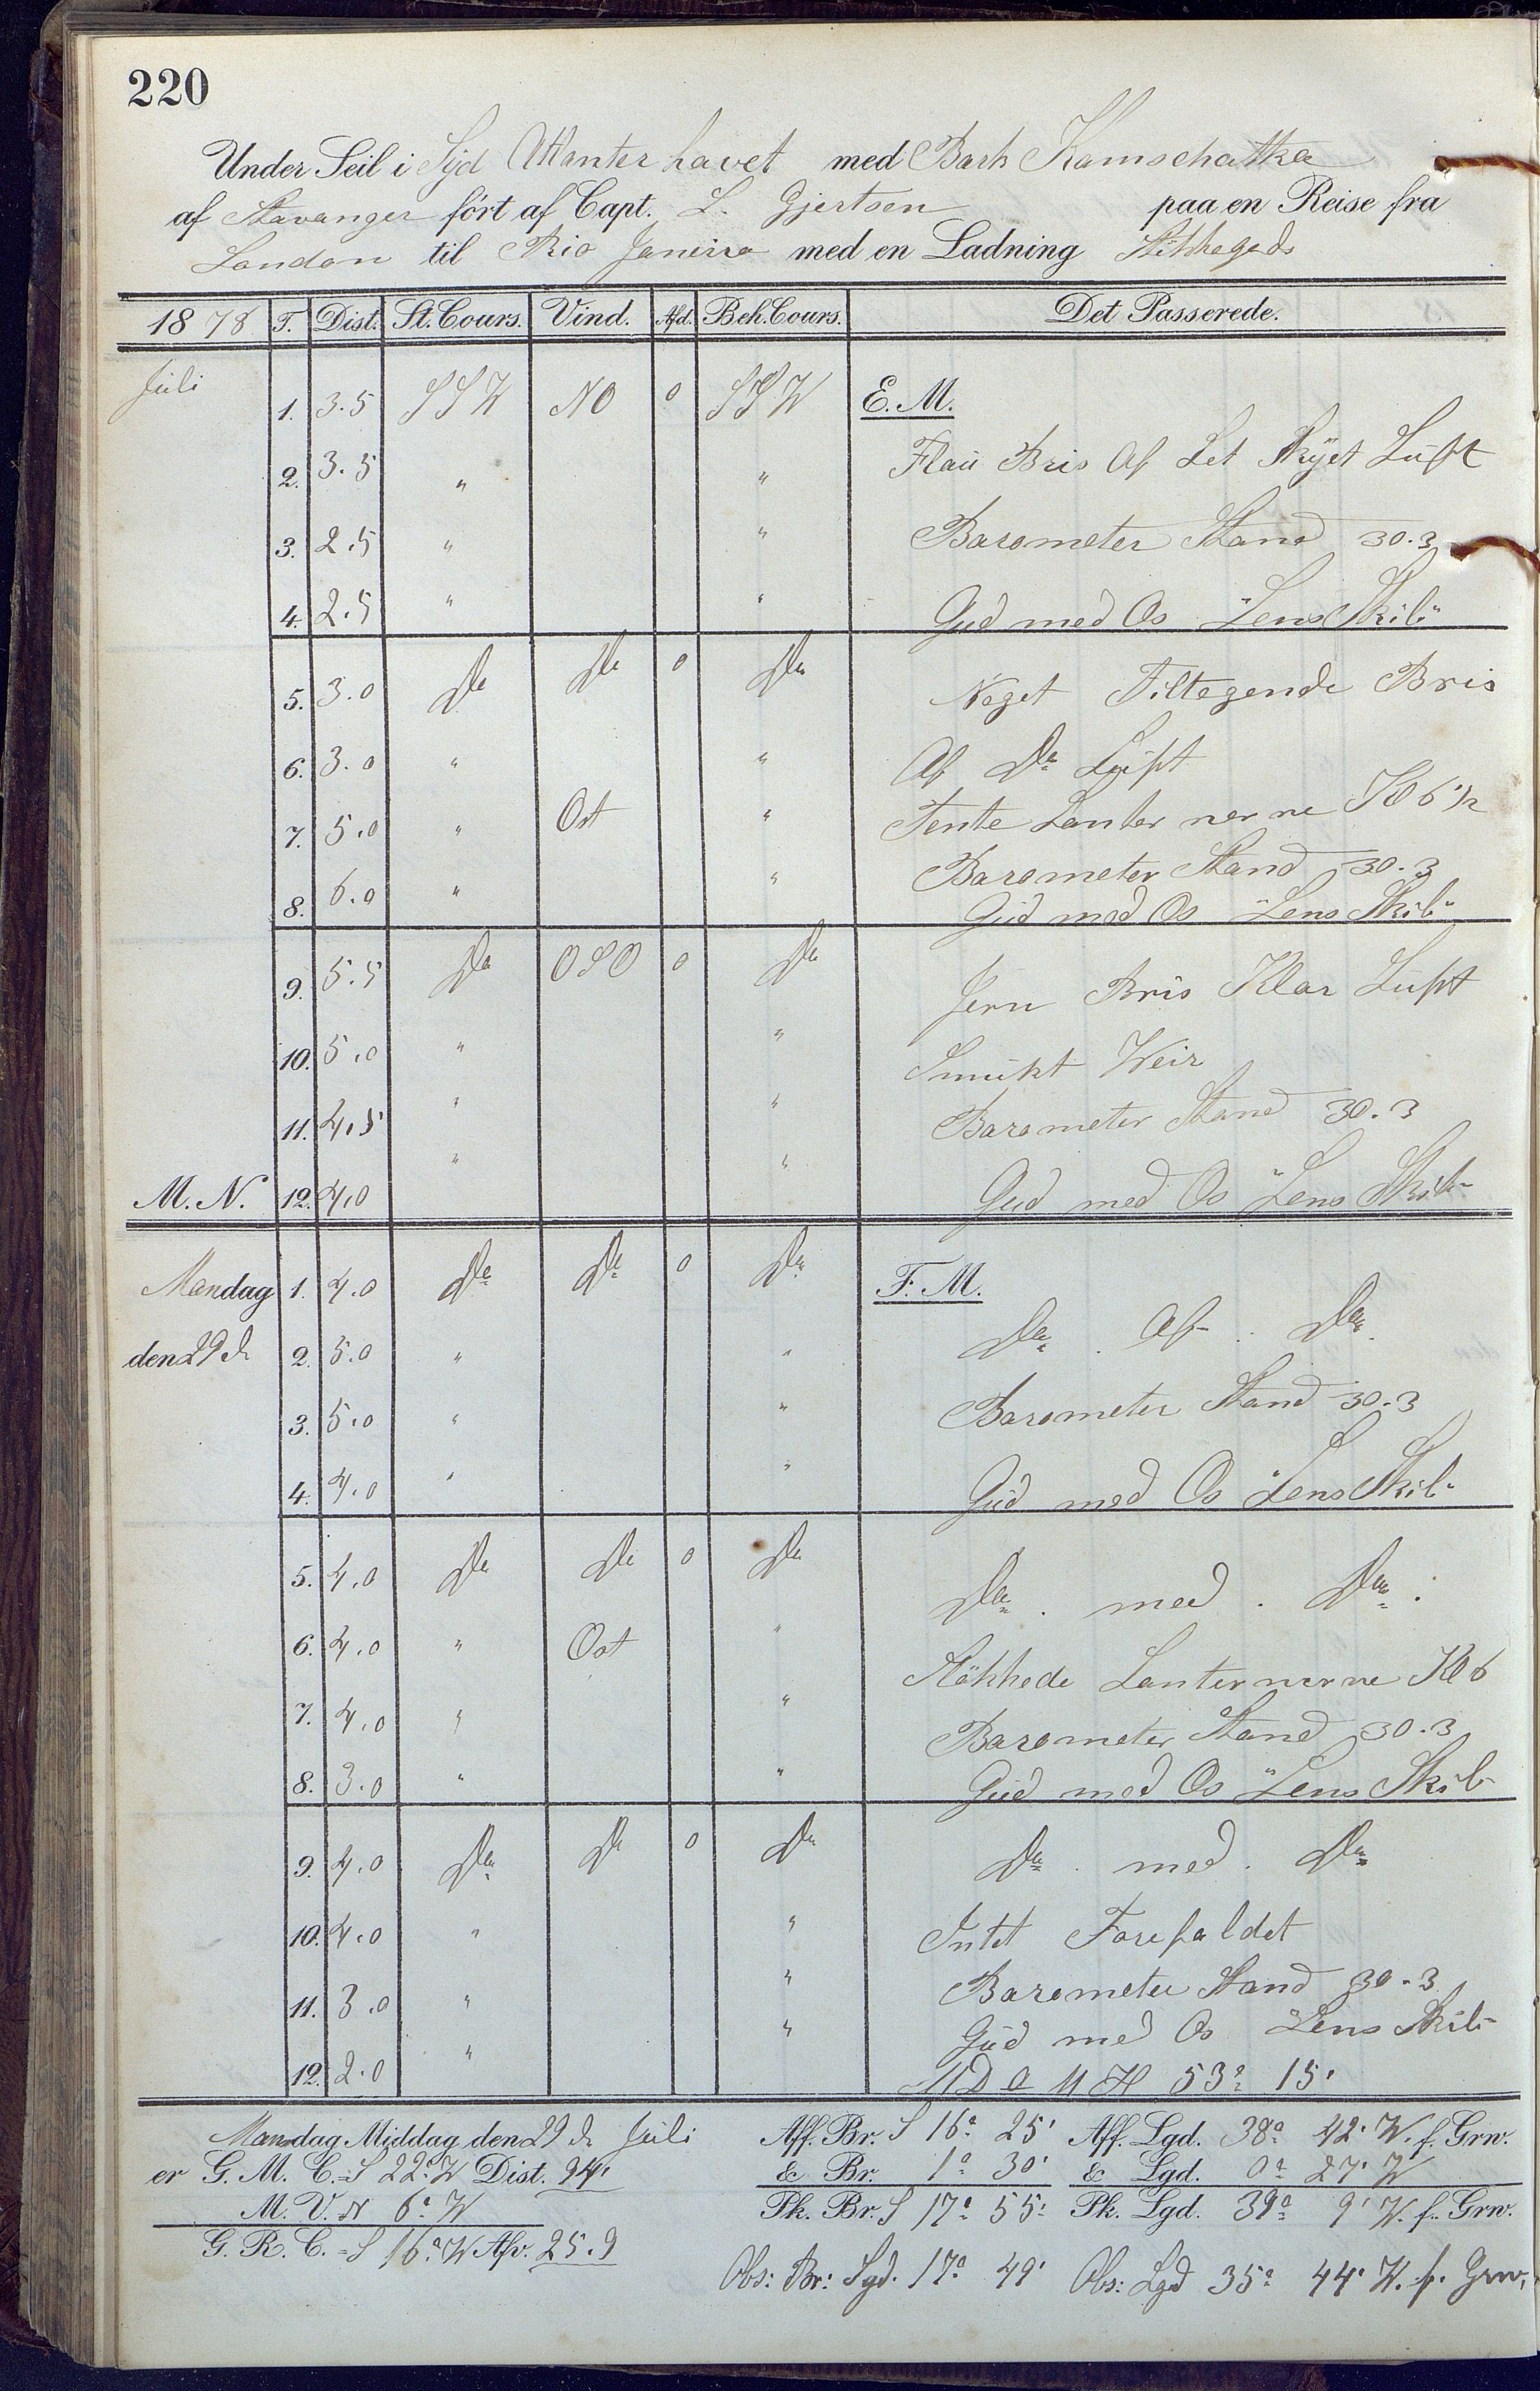 220
Under Seil i Syd Atlanter havet med Bark Kamschatka
af Stavanger ført af Capt. L. Gjertsen paa en Reise fra
London til Rio Janeiro med en Ladning Stikkegods
1878 T. Dist. St. Cours. Vind. Afd. Beh. Cours. Det Passerede.
Juli
1. 3.5 SSW NO 0 SSW E. M.
2. 3.5 " " Flau Bris Af Let Skyet Luft
3. 2.5 " " Barometer Stand 30.3
4. 2.5 " " Gud med Os "Lens Skib"
5. 3.0 Do Do 0 Do Noget Tiltegende Bris
6. 3.0 " " Af Do Luft
7. 5.0 " Ost " Tente Lanter nerne Kl 6 1/2
8. 6.0 " " Barometer Stand 30.3
Gud med Os "Lens Skib"
9. 5.5 Do OSO 0 Do Jevn Bris Klar Luft
10. 5.0 " " Smukt Veir
11. 4.5 " " Barometer Stand 30.3
M. N. 12. 4.0 " " Gud med Os "Lens Skib"
Mandag 1. 4.0 Do Do 0 Do F. M.
den 29 d. 2. 5.0 " " Do. Af. Do.
3. 5.0 " " Barometer Stand 30.3
4. 4.0 " " Gud med Os "Lens Skib"
5. 4.0 Do Do 0 Do Do. med. Do.
6. 4.0 " Ost " Slökkede Lanternerne Kl 6
7. 4.0 " " Barometer Stand 30.3
8. 3.0 " " Gud med Os "Lens Skib"
9. 4.0 Do Do 0 Do Do. med. Do
10. 4.0 " " Intet Forefaldet
11. 3.0 " " Barometer Stand 30.3
" Gud med Os Lens Skib"
12. 2.0 " 53° 15'
Mandag Middag den 29 d. Juli Aff. Br. S 16° 25' Aff. Lgd. 38° 42' W. f. Grw.
er G. M. C. = S 22° W Dist. 94' & Br. 1° 30' & Lgd. 0° 27' W
M. V. N 6° W Pk. Br. S 17° 55' Pk. Lgd. 39° 9' W. f. Grw.
G. R. C. = S 16° W Afv. 25.9
Obs: Br: Syd. 17° 49' Obs: Lgd 35° 44' W. f. Grw.